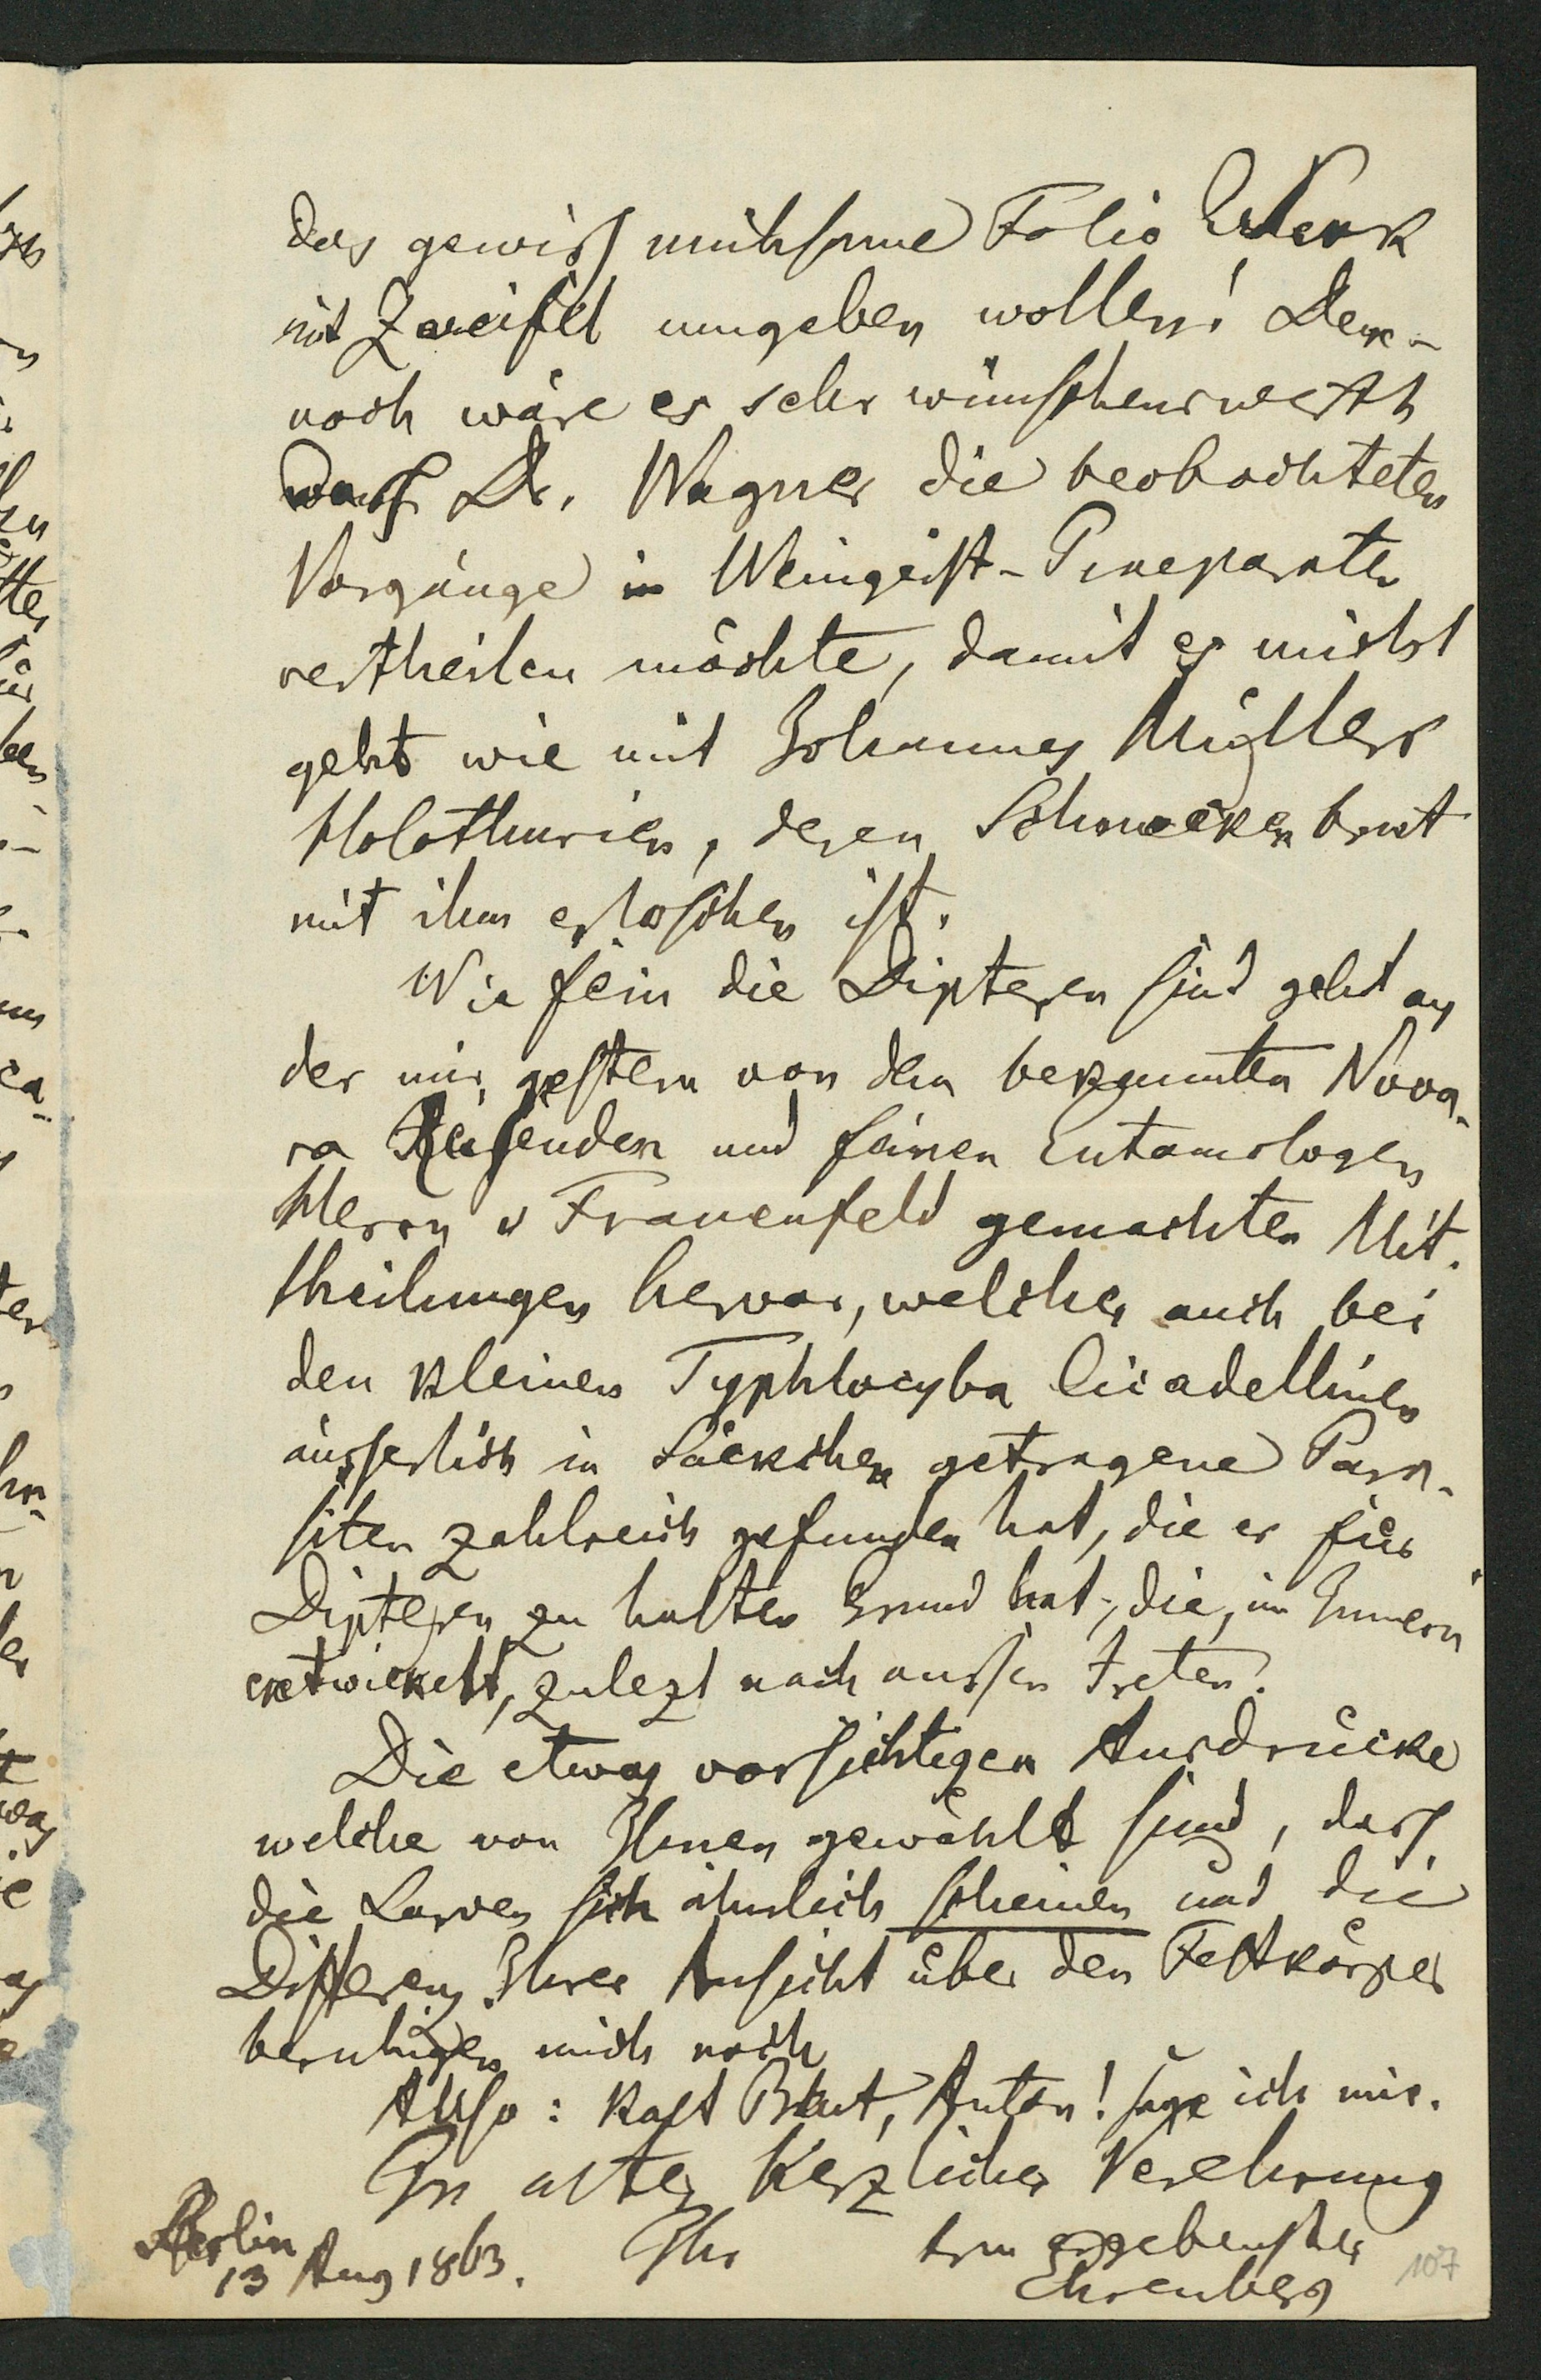 das gewiss mühsame Folio Werk
mit Zweifel umgeben wollen! Den-
noch wäre es sehr wünschenswerth
dass Dr. Wagner die beobachteten
Vorgänge in Weingeist-Praeparaten
vertheilen möchte, damit es nicht
geht wie mit Johannes Müllers
Holothurien, deren Schneckenbrut
mit ihm erloschen ist.
Wie fein die Dipteren sind geht aus
der mir gestern von dem bekannten Nova-
ra Reisenden und feinen Entomologen
Herrn v Frauenfeld gemachten Mit-
theilungen hervor, welcher auch bei
den kleinen Typhlocyba Cicadellinen
äusserlich in Säckchen getragene Para-
siten zahlreich gefunden hat, die er für
Dipteren zu halten Grund hat, die, im Innern
entwickelt, zulezt nach aussen treten.
Die etwas vorsichtigen Ausdrücke
welche von Ihnen gewählt sind, dass
die Larven sich ähnlich scheinen und die
Differenz Ihrer Ansicht über den Fettkörper
beruhigen mich noch
Also: kalt Blut, Anton! sage ich mir.
In alter herzlicher Verehrung
Berlin
13 Aug 1863. Ihr treu ergebenster
Ehrenberg
107